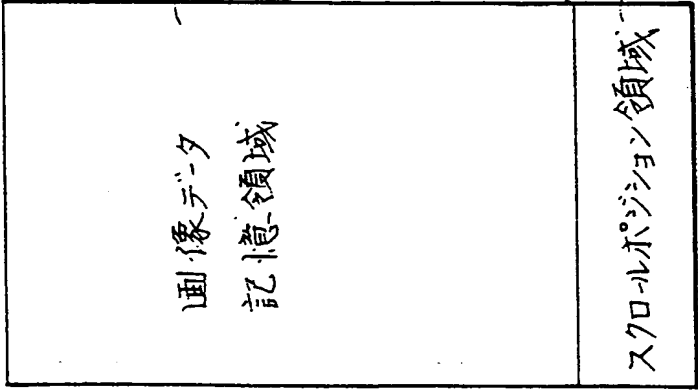 画像データ
記憶領域
スクロールポジション領域